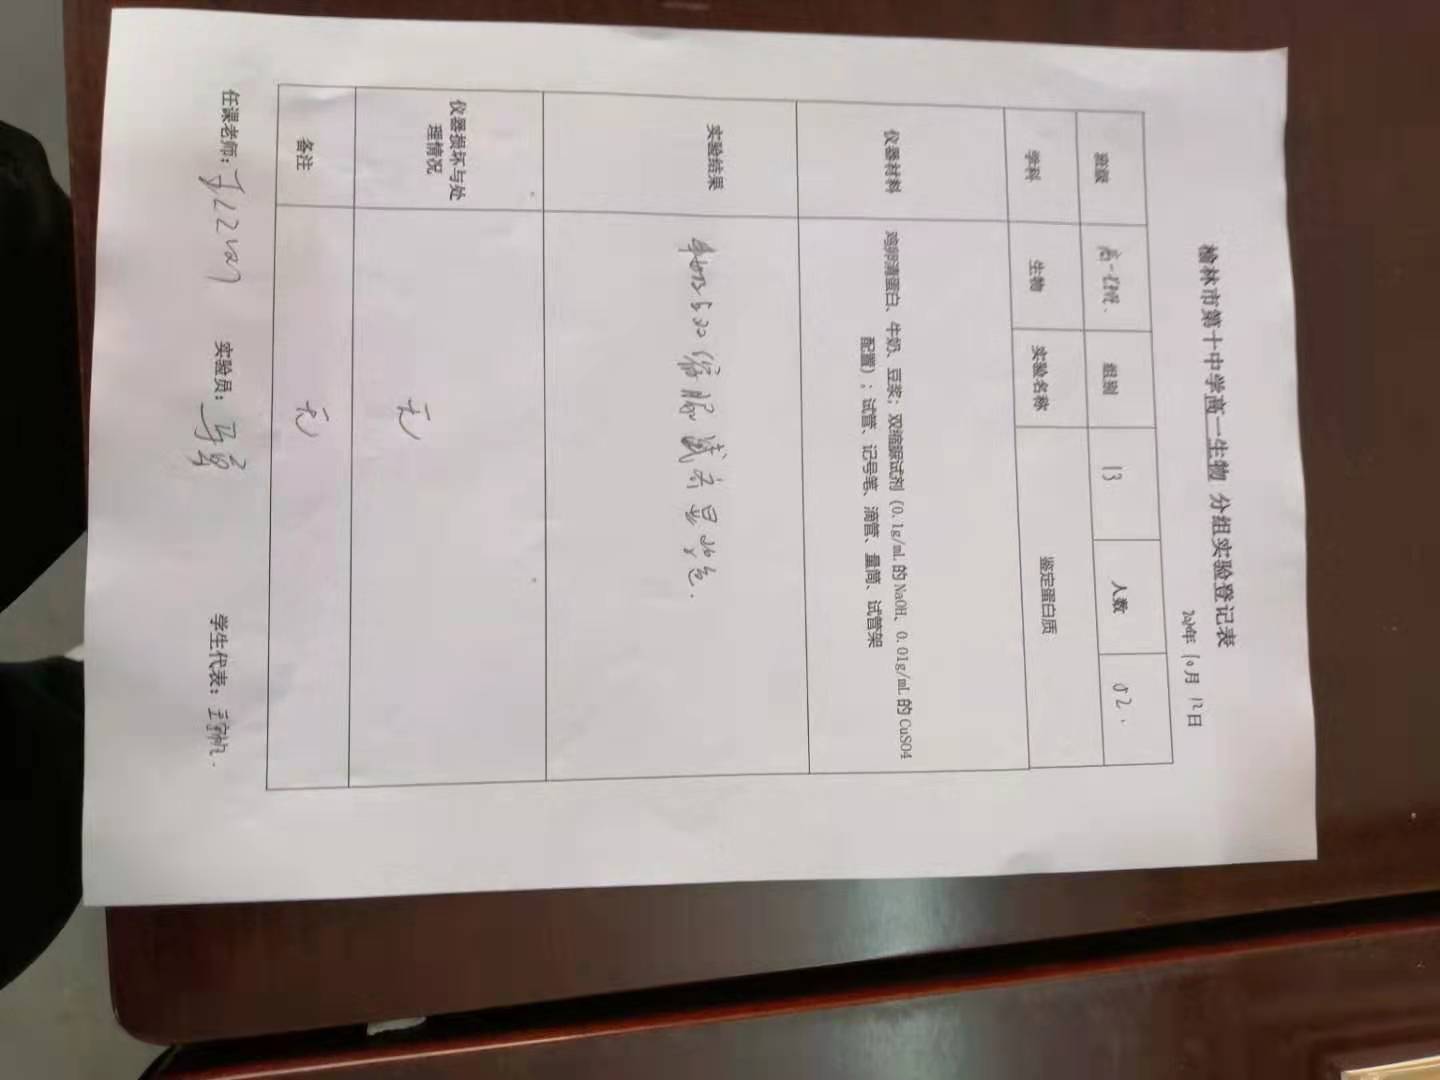 榆林市第十中学高一生物 分组实验登记表
年10月12日
班级 组别 13 人数 52.
学科 生物 实验名称 鉴定蛋白质
仪器材料 鸡卵清蛋白、牛奶、豆浆；双缩脲试剂（0.1g/mL的NaOH、0.01g/mL的CuSO4
配置）；试管、记号笔、滴管、量筒、试管架
实验结果 双缩脲试剂显紫色.
仪器损坏与处
理情况 无
备注 无
任课老师： 实验员： 学生代表：